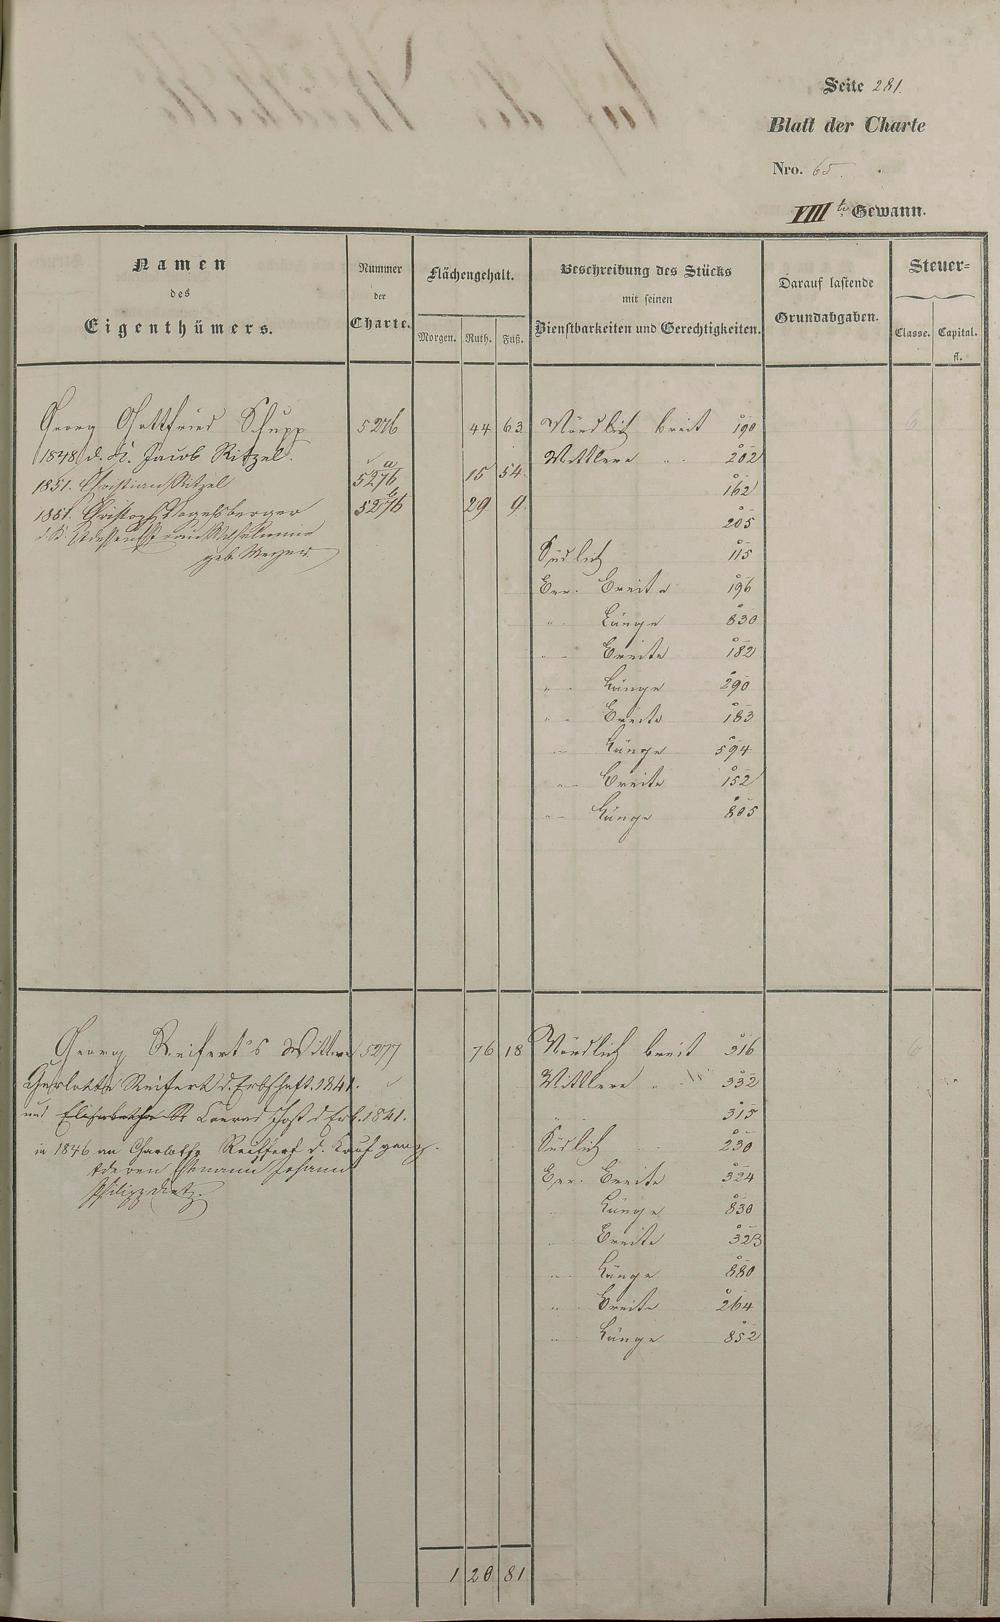 Seite 281.
Blatt der Charte
Nro. 65.
VIII te Gewann.
Namen
des
Eigenthümers.
Nummer
der
Charte.
Flächengehalt.
Morgen. Ruth. Fuß.
Beschreibung des Stücks
mit seinen
Dienstbarkeiten und Gerechtigkeiten.
Darauf lastende
Grundabgaben.
Steuer-
Classe. Capital.
fl.
Georg Gottfried Schupp 5276 44 63 Nördlich breit 190
1848 d. K. Jacob Ritzel. Mittlere " 202
1851. Christian Ritzel 5276 a 15 54
162
1851. Christoph Vogelsberger 5276 b 29 9
205
geb. Meyer
Südlich 115
Err. Breite 196
" Länge 830
" Breite 182
" Länge 290
" Breite 183
" Länge 594
" Breite 152
" Länge 805
6
Georg Reifert's Wittwe 5277 76 18 Nördlich breit 316
Charlotte Reifert d. Erbschaft. 1841. Mittlere " 332
und Elisabetha Conrad Jost d Erb. 1841. 315
in 1846 an Charlotte Reiffert d. Kauf ganz. Südlich 230
& deren Ehemann Johann Err. Breite 324
Philipp Dietz.
Länge 830
Breite 323
" Länge 880
" Breite 264
" Länge 852
6
1 20 81